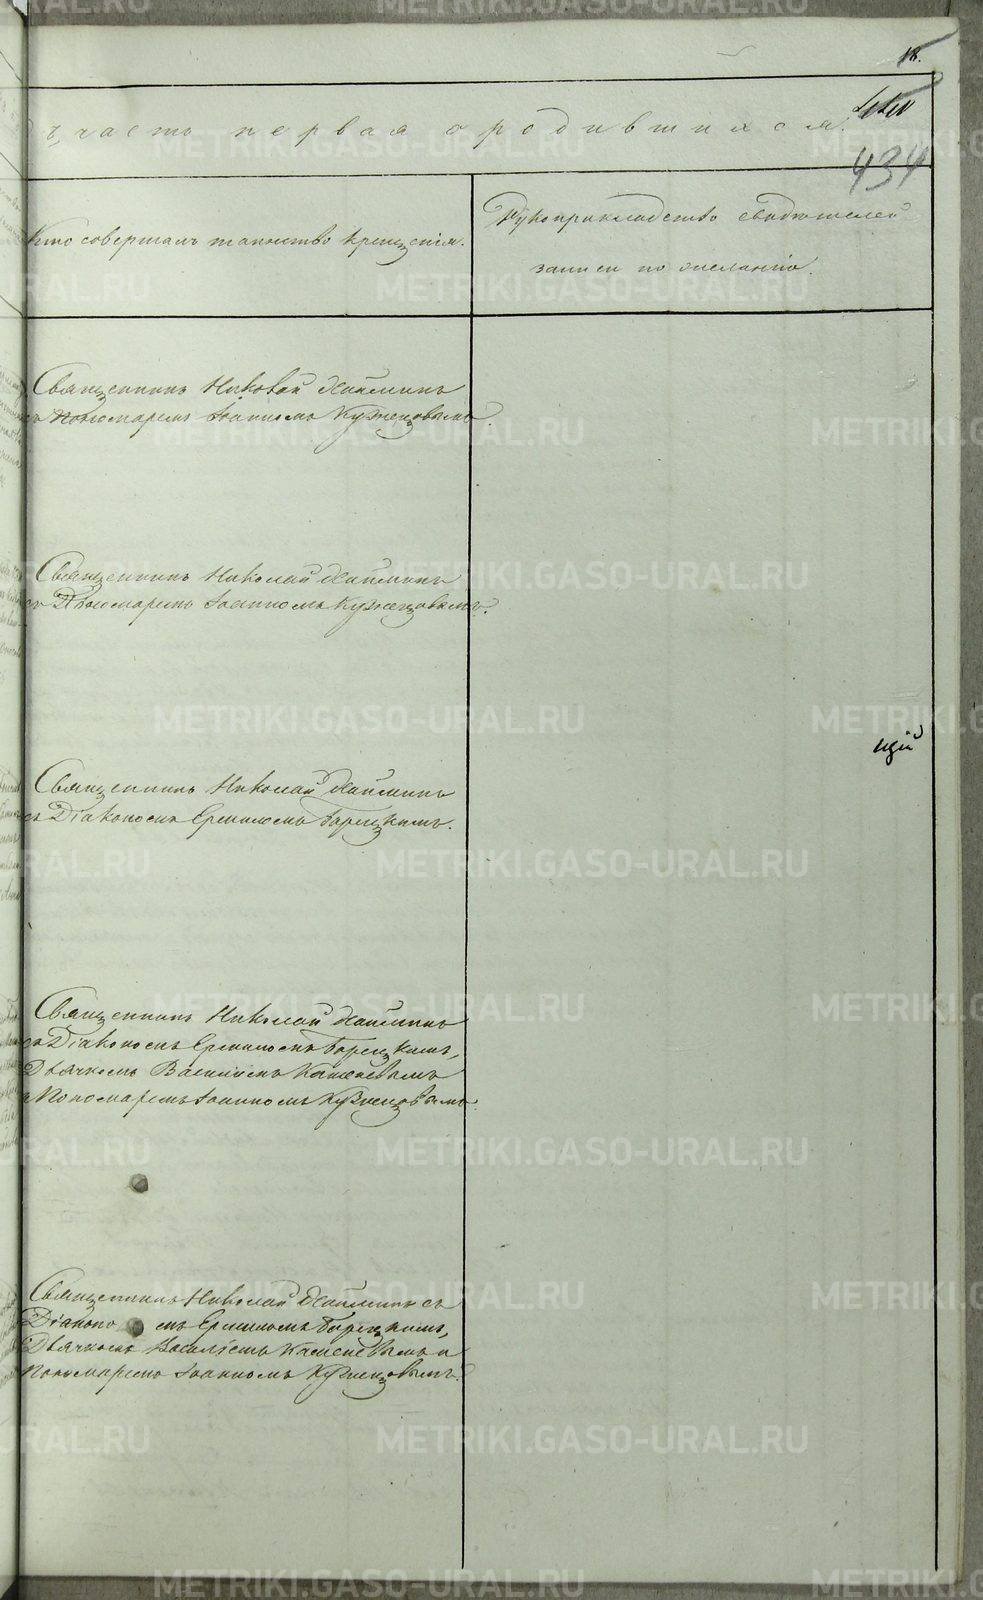 18.
часть первая о родившихся.
434
Кто совершалъ таинство крещенія.
Рукоприкладство свидѣтелей
записи по желанію.
Священникъ Николай
съ Пономаремъ Іоанномъ Кузнецовымъ.
Священникъ Николай
съ Пономаремъ Іоанномъ Кузнецовымъ.
щій
Священникъ Николай
съ Діакономъ Ермиломъ
Священникъ Николай
съ Діакономъ Ермиломъ
Дьячкомъ Василіемъ Каменевымъ
и Пономаремъ Іоанномъ Кузнецовымъ.
Священникъ Николай съ
Діакономъ Ермиломъ
Дьячкомъ Василіемъ Каменевымъ и
Пономаремъ Іоанномъ Кузнецовымъ.
METRIKI.GASO-URAL.RU